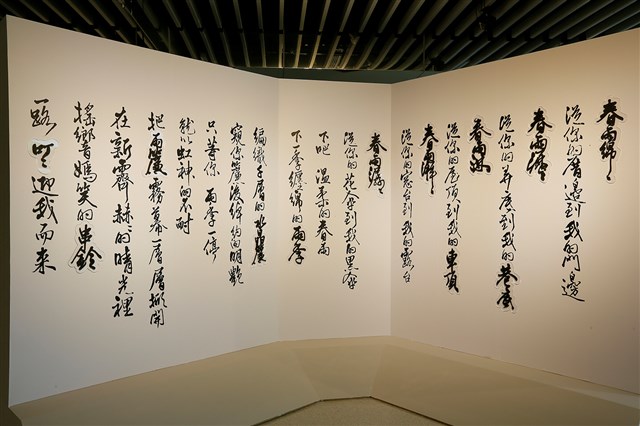 春雨綿綿
從你的厝邊到我的門邊
春雨綿綿
從你的底到我的巷底
春雨綿綿
從你的屋頂到我的車頂
春雨綿綿
從你的窗台到我的露台
春雨綿綿
從你的花傘到我的黑傘
下吧 溫柔的春雨
下一季纏綿的雨季
編織千層的水晶簾
窺你簾後綽約的明艷
只等你 雨季一停
就以虹神的不耐
把雨簾霧幕一層層掀開
在新霽赫赫的晴光裡
搖響嫣笑的串鈴
一路叮叮迎我而來